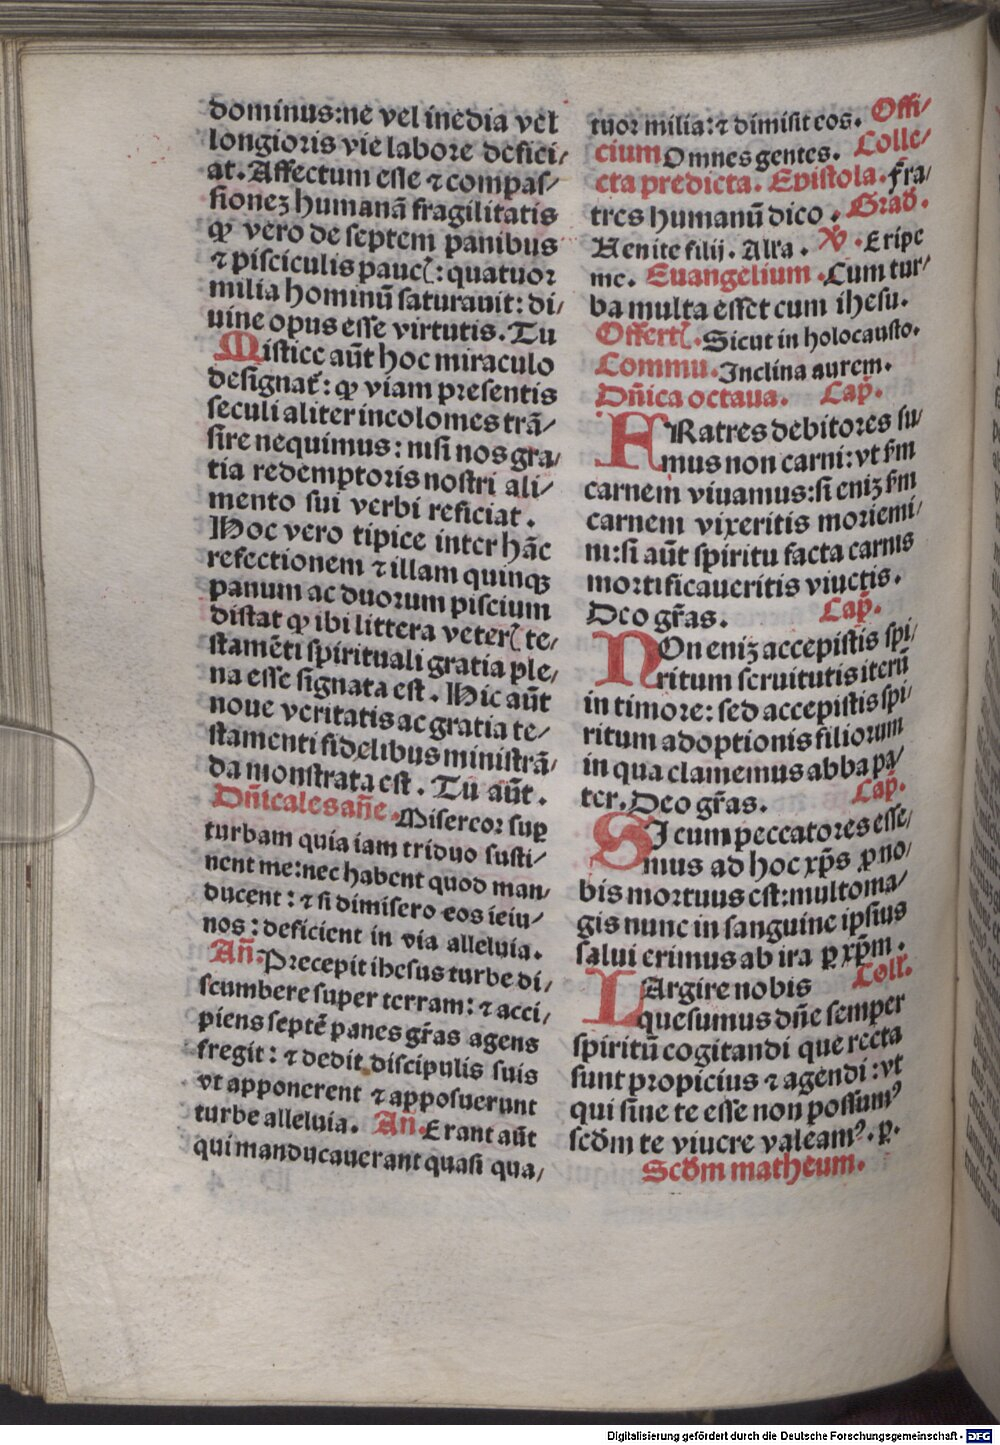 dominus:ne vel inedia vel
longioris vie labore defici/
at. Affectum esse ⁊ compas/
sionez humanã fragilitatis
ꝙ vero de septem panibus
⁊ pisciculis pauc̛: quatuor
milia hominũ saturauit: di/
uine opus esse virtutis. Tu
Mistice aũt hoc miraculo
designat᷑: ꝙ viam presentis
seculi aliter incolomes trã/
sire nequimus: nisi nos gra/
tia redemptoris nostri ali/
mento sui verbi reficiat.
Hoc vero tipice inter hãc
refectionem ⁊ illam quinqꝫ
panum ac duorum piscium
distat ꝙ ibi littera veter̛ te/
stamẽti spirituali gratia ple/
na esse signata est. Hic aũt
noue veritatis ac gratia te/
stamenti fidelibus ministrã/
da monstrata est. Tu aũt.
Dñicales añe. Misereor suꝑ
turbam quia iam triduo susti/
nent me:nec habent quod man/
ducent: ⁊ si dimisero eos ieiu/
nos: deficient in via alleluia.
Añ. Precepit ihesus turbe di/
scumbere super terram: ⁊ acci/
piens septẽ panes gr̃as agens
fregit: ⁊ dedit discipulis suis
vt apponerent ⁊ apposuerunt
turbe alleluia. Añ. Erant aũt
qui manducauerant quasi qua/
tuor milia: ⁊ dimisit eos. Offi/
cium Omnes gentes. Colle/
cta predicta. Epistola. Fra/
tres humanũ dico. Grad̃.
Uenite filij. Alľa. V̾. Eripe
me. Euangelium. Cum tur/
ba multa esset cum ihesu.
Offert̛. Sicut in holocausto.
Commu. Inclina aurem.
Dñica octaua. Cap̃.
FRatres debitores su/
mus non carni: vt ẜm
carnem viuamus:si eniz ẜm
carnem vixeritis moriemi/
ni:si aũt spiritu facta carnis
mortificaueritis viuetis.
Deo gr̃as. Cap̃.
NOn eniz accepistis spi/
ritum seruitutis iterũ
in timore: sed accepistis spi/
ritum adoptionis filiorum
in qua clamemus abba pa/
ter. Deo gr̃as. Cap̃.
SI cum peccatores esse/
mus ad hoc xp̃s ꝓ no/
bis mortuus est:multo ma/
gis nunc in sanguine ipsius
salui erimus ab ira ꝑ xp̃m.
LArgire nobis Coll̃.
quesumus dñe semper
spiritũ cogitandi que recta
sunt propicius ⁊ agendi: vt
qui sine te esse non possumꝰ
scd̃m te viuere valeamꝰ. ꝑ.
Scd̃m matheum.
Digitalisierung gefördert durch die Deutsche Forschungsgemeinschaft - DFG